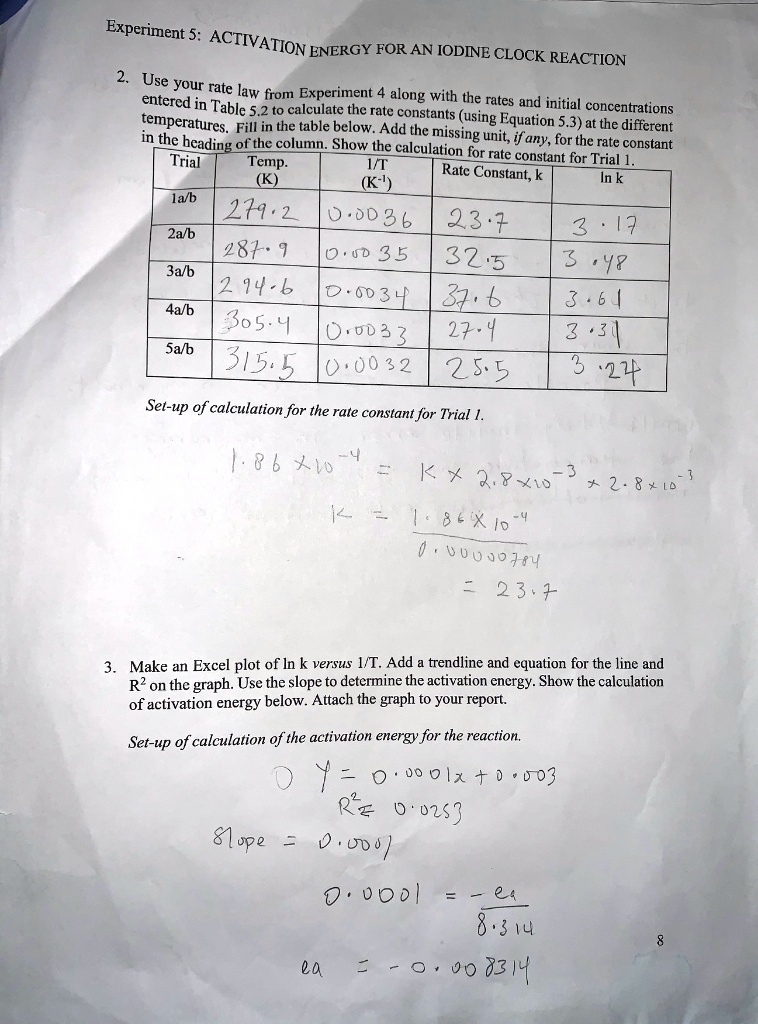 Experiment 5: ACTIVATION ENERGY FOR AN IODINE CLOCK REACTION
2. Use your rate law from Experiment 4 along with the rates and initial concentrations
entered in Table 5.2 to calculate the rate constants (using Equation 5.3) at the different
temperatures. Fill in the table below. Add the missing unit, if any, for the rate constant
in the heading of the column. Show the calculation for rate constant for Trial 1.
Trial Temp. (K) 1/T (K⁻¹) Rate Constant, k ln k
1a/b 279.2 0.0036 23.7 3.17
2a/b 287.9 0.0035 32.5 3.48
3a/b 294.6 0.0034 37.6 3.61
4a/b 305.4 0.0033 27.4 3.31
5a/b 315.5 0.0032 25.5 3.24
Set-up of calculation for the rate constant for Trial 1.
1.86 x10⁻⁴ = K x 2.8x10⁻³ x 2.8x10⁻³
K = 1.86 x 10⁻⁴
0.00000784
= 23.7
3. Make an Excel plot of ln k versus 1/T. Add a trendline and equation for the line and
R² on the graph. Use the slope to determine the activation energy. Show the calculation
of activation energy below. Attach the graph to your report.
Set-up of calculation of the activation energy for the reaction.
Y = 0.0001x + 0.003
R² = 0.0253
Slope = 0.0001
0.0001 = - ea
8.314
ea = - 0.008314
8